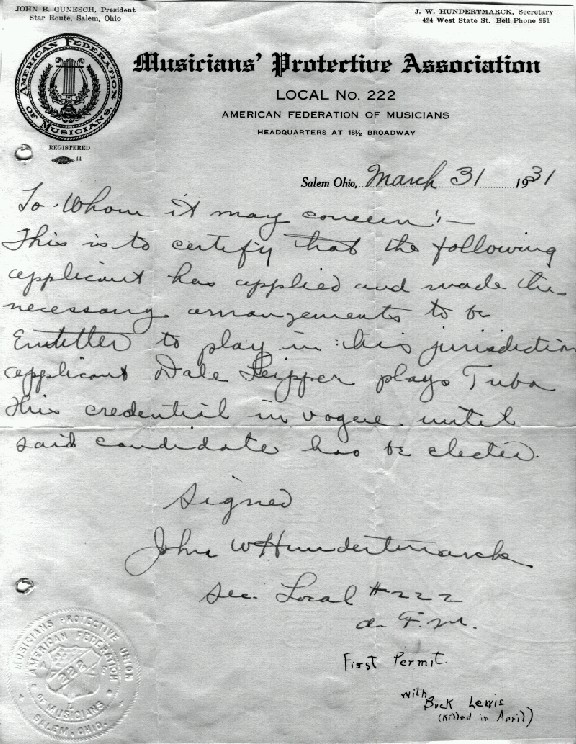 JOHN R. GUNESCH, President
Star Route, Salem, Ohio
J. W. HUNDERTMARCK, Secretary
424 West State St. Bell Phone 551
AMERICAN FEDERATION
OF MUSICIANS
REGISTERED
Musicians' Protective Association
LOCAL No. 222
AMERICAN FEDERATION OF MUSICIANS
HEADQUARTERS AT 15½ BROADWAY
Salem Ohio, March 31 1931
To Whom it may concern:—
This is to certify that the following
applicant has applied and made the
necessary arrangements to be
to play in his jurisdiction
applicant Dale plays Tuba
this credential in vogue until
said candidate has be elected.
Signed
John W Hundertmarck
Sec. Local #222
a. F. M.
First Permit.
with Buck Lewis
(Killed in April)
MUSICIANS PROTECTIVE UNION
AMERICAN FEDERATION
222
OF MUSICIANS
SALEM, OHIO.